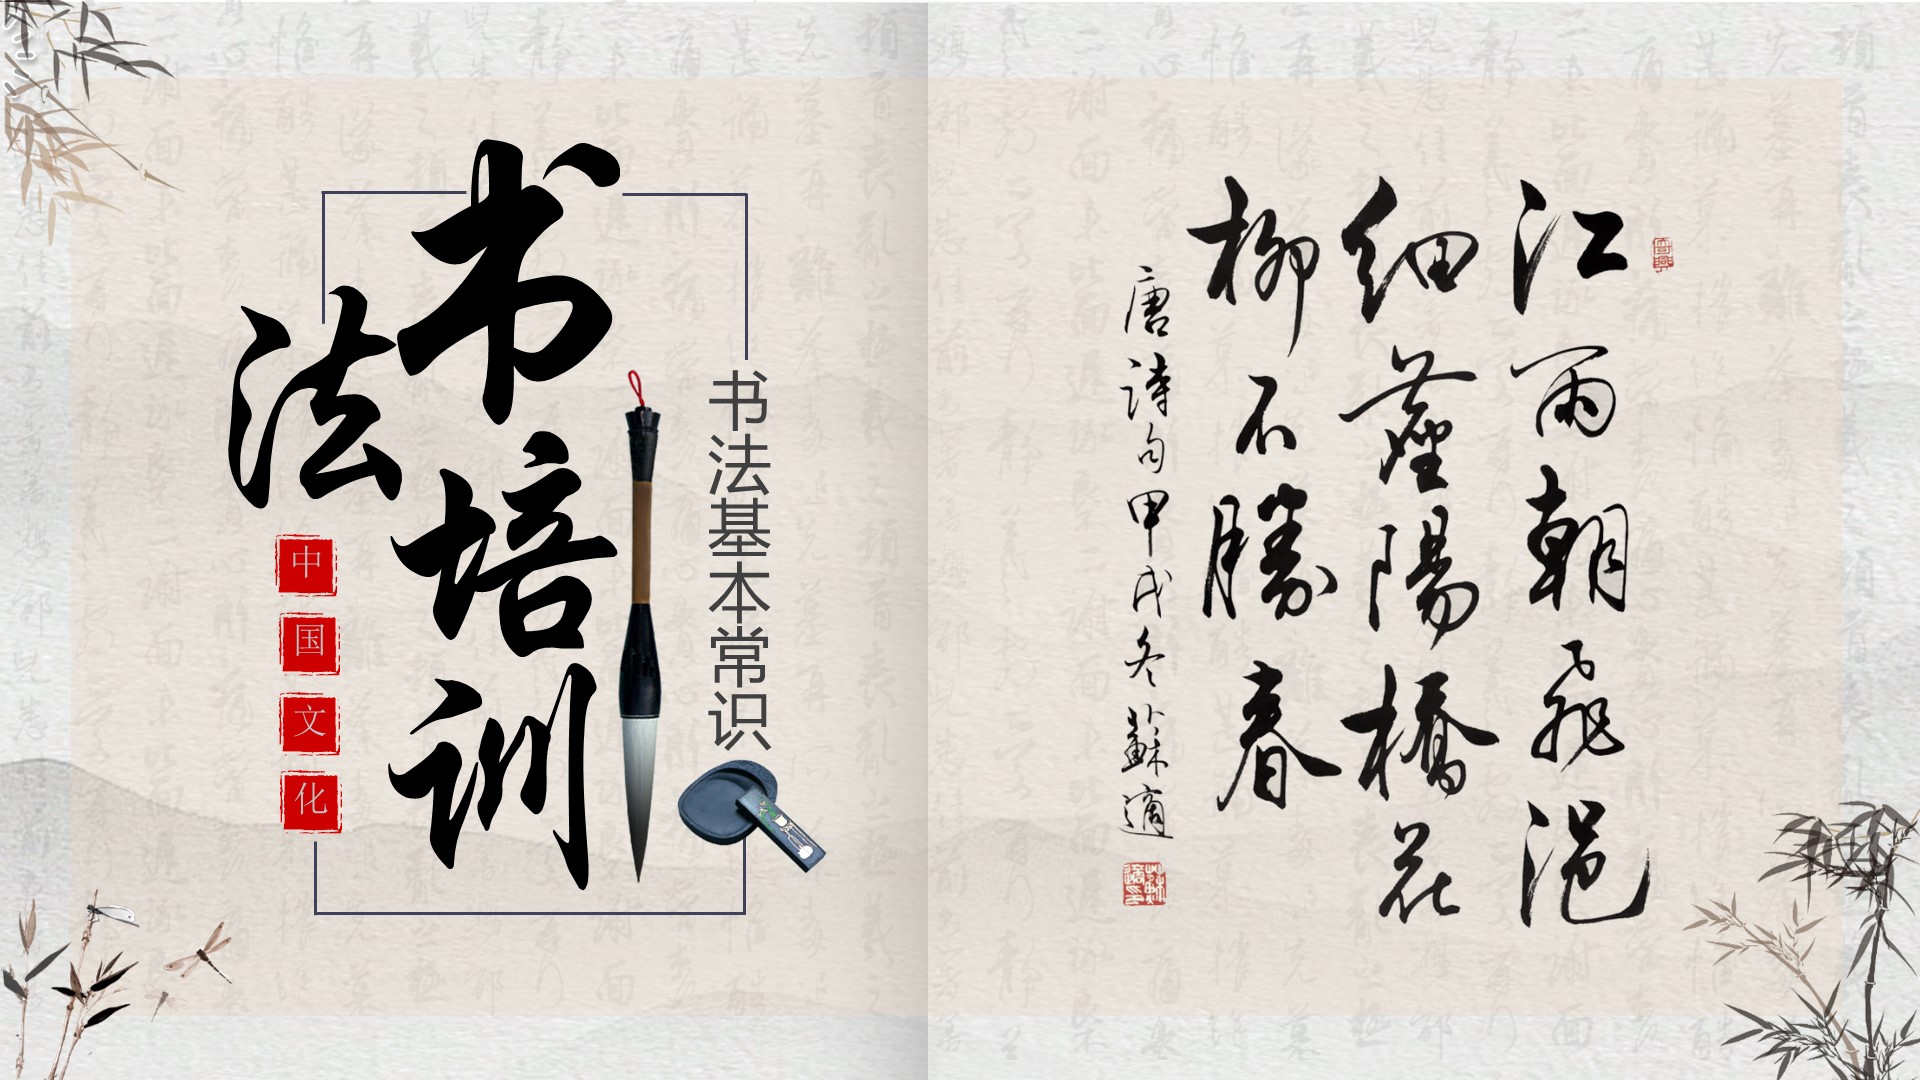 书法培训
中国文化
书法基本常识
江雨朝飛浥
細塵陽橋花
柳不勝春
唐詩句甲戌冬蘇適